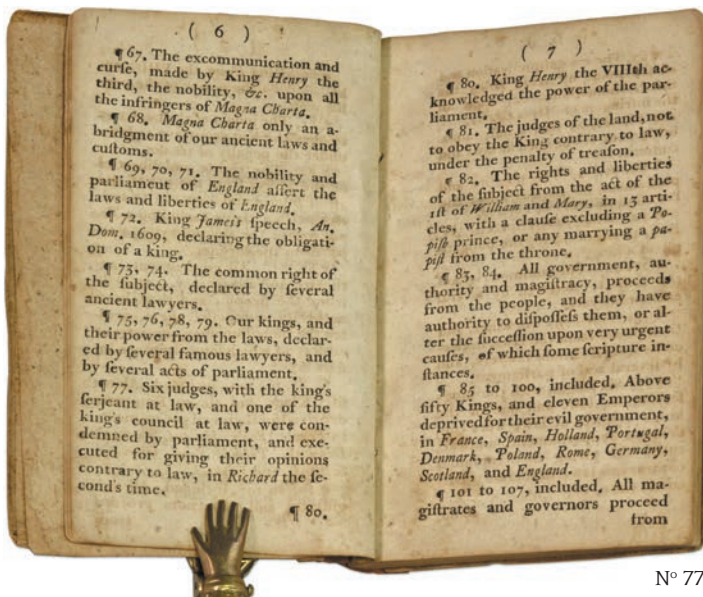 ( 6 )
¶ 67. The excommunication and
curſe, made by King Henry the
third, the nobility, &c. upon all
the infringers of Magna Charta.
¶ 68. Magna Charta only an a-
bridgment of our ancient laws and
cuſtoms.
¶ 69, 70, 71. The nobility and
parliament of England aſſert the
laws and liberties of England.
¶ 72. King James's ſpeech, An.
Dom. 1609, declaring the obligati-
on of a king.
¶ 73, 74. The common right of
the ſubject, declared by ſeveral
ancient lawyers.
¶ 75, 76, 78, 79. Our kings, and
their power from the laws, declar-
ed by ſeveral famous lawyers, and
by ſeveral acts of parliament.
¶ 77. Six judges, with the king's
ſerjeant at law, and one of the
king's council at law, were con-
demned by parliament, and exe-
cuted for giving their opinions
contrary to law, in Richard the ſe-
cond's time.
¶ 80.
( 7 )
¶ 80. King Henry the VIIIth ac-
knowledged the power of the par-
liament.
¶ 81. The judges of the land, not
to obey the King contrary to law,
under the penalty of treaſon.
¶ 82. The rights and liberties
of the ſubject from the act of the
1ſt of William and Mary, in 13 arti-
cles, with a clauſe excluding a Po-
piſh prince, or any marrying a pa-
piſt from the throne.
¶ 83, 84. All government, au-
thority and magiſtracy, proceeds
from the people, and they have
authority to diſpoſſeſs them, or al-
ter the ſucceſſion upon very urgent
cauſes, of which ſome ſcripture in-
ſtances.
¶ 85 to 100, included. Above
fifty Kings, and eleven Emperors
deprived for their evil government,
in France, Spain, Holland, Portugal,
Denmark, Poland, Rome, Germany,
Scotland, and England.
¶ 101 to 107, included. All ma-
giſtrates and governors proceed
from
Nº 77